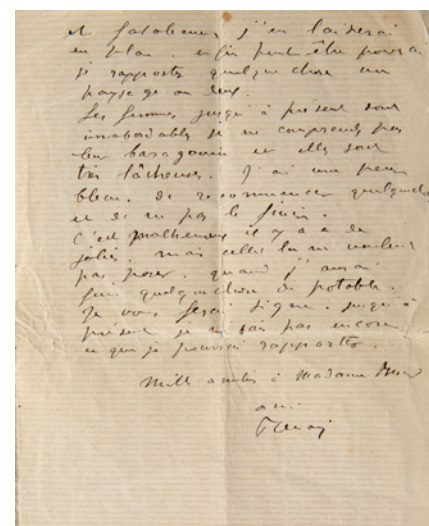 et fatalement j'en laisserai
en plan. enfin peut être pourrai
je rapporter quelque chose un
paysage ou deux.
Les femmes jusqu'à présent sont
inabordables je ne comprends pas
leur baragouin et elles sont
très lâcheuses. J'ai une peur
bleue. de recommencer quelque
et de ne pas le finir.
C'est malheureux il y a de
jolies. mais celles la ne veulent
pas poser. quand j'aurai
fini quelque chose de potable.
Je vous ferai signe. jusqu'à
présent je ne sais pas encore
ce que je pourrai rapporter.
Mille amitiés à Madame
ami
Renoir